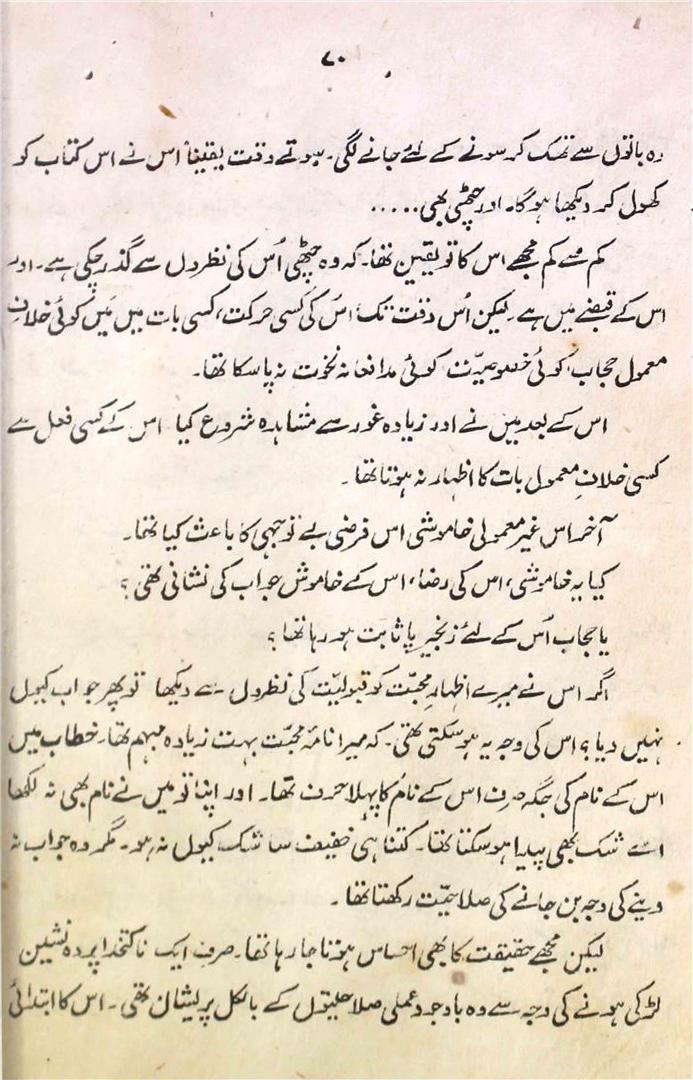 ۷۰
وہ باتوں سے تھک کر سونے کے لئے جانے لگی۔ سوتے وقت یقیناً اس نے اس کتاب کو
کھول کر دیکھا ہوگا۔ اور چٹھی بھی.....
کم سے کم مجھے اس کا تو یقین تھا۔ کہ وہ چٹھی اُس کی نظروں سے گذر چکی ہے۔ اور
اس کے قبضے میں ہے۔ لیکن اُس وقت تک اس کی کسی حرکت، کسی بات میں میں کوئی خلافِ
معمول حجاب، کوئی خصوصیّت کوئی مدافعانہ نخوت نہ پا سکا تھا۔
اس کے بعد میں نے اور زیادہ غور سے مشاہدہ شروع کیا اس کے کسی فعل سے
کسی خلافِ معمول بات کا اظہار نہ ہوتا تھا۔
آخر اس غیر معمولی خاموشی اس فرضی بے توجہی کا باعث کیا تھا۔
کیا یہ خاموشی، اس کی رضا، اس کے خاموش جواب کی نشانی تھی؟
یا حجاب اُس کے لئے زنجیرِ پا ثابت ہو رہا تھا؟
اگر اس نے میرے اظہارِ محبّت کو قبولیّت کی نظروں سے دیکھا تو پھر جواب کیوں
نہیں دیا؟ اس کی وجہ یہ ہو سکتی تھی۔ کہ میرا نامۂ محبّت بہت زیادہ مبہم تھا۔ خطاب میں
اس کے نام کی جگہ صرف اس کے نام کا پہلا حرف تھا۔ اور اپنا تو میں نے نام بھی نہ لکھا
اسے شک بھی پیدا ہو سکتا تھا۔ کتنا ہی خفیف سا شک کیوں نہ ہو۔ مگر وہ جواب نہ
دینے کی وجہ بن جانے کی صلاحیّت رکھتا تھا۔
لیکن مجھے حقیقت کا بھی احساس ہوتا جا رہا تھا۔ صرف ایک ناکتخدا پردہ نشین
لڑکی ہونے کی وجہ سے وہ باوجود عملی صلاحیتوں کے بالکل پریشان تھی۔ اس کا ابتدائی